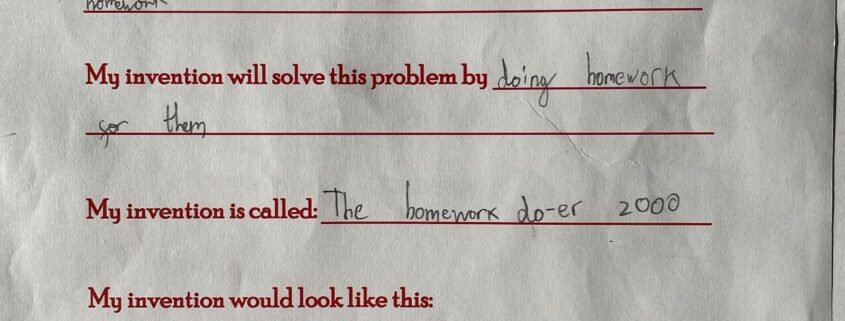 homework
My invention will solve this problem by doing homework
for them
My invention is called: The homework do-er 2000
My invention would look like this: